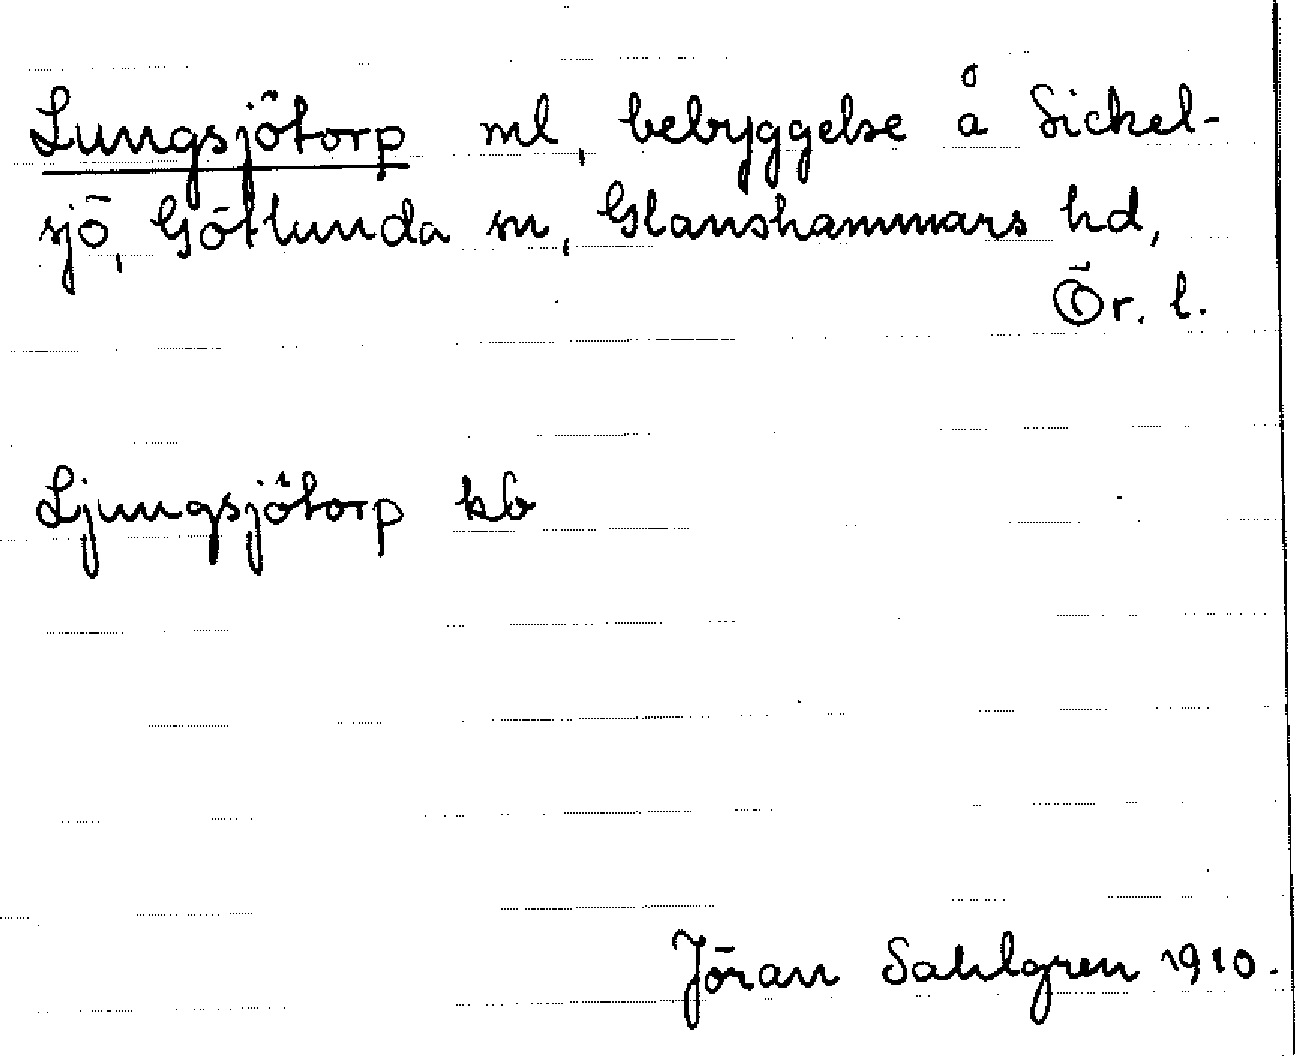 Lungsjötorp ml, bebyggelse å Sickel-
sjö, Götlunda sn, Glanshammars hd,
Ör. l.
Ljungsjötorp kb
Jöran Sahlgren 1910.